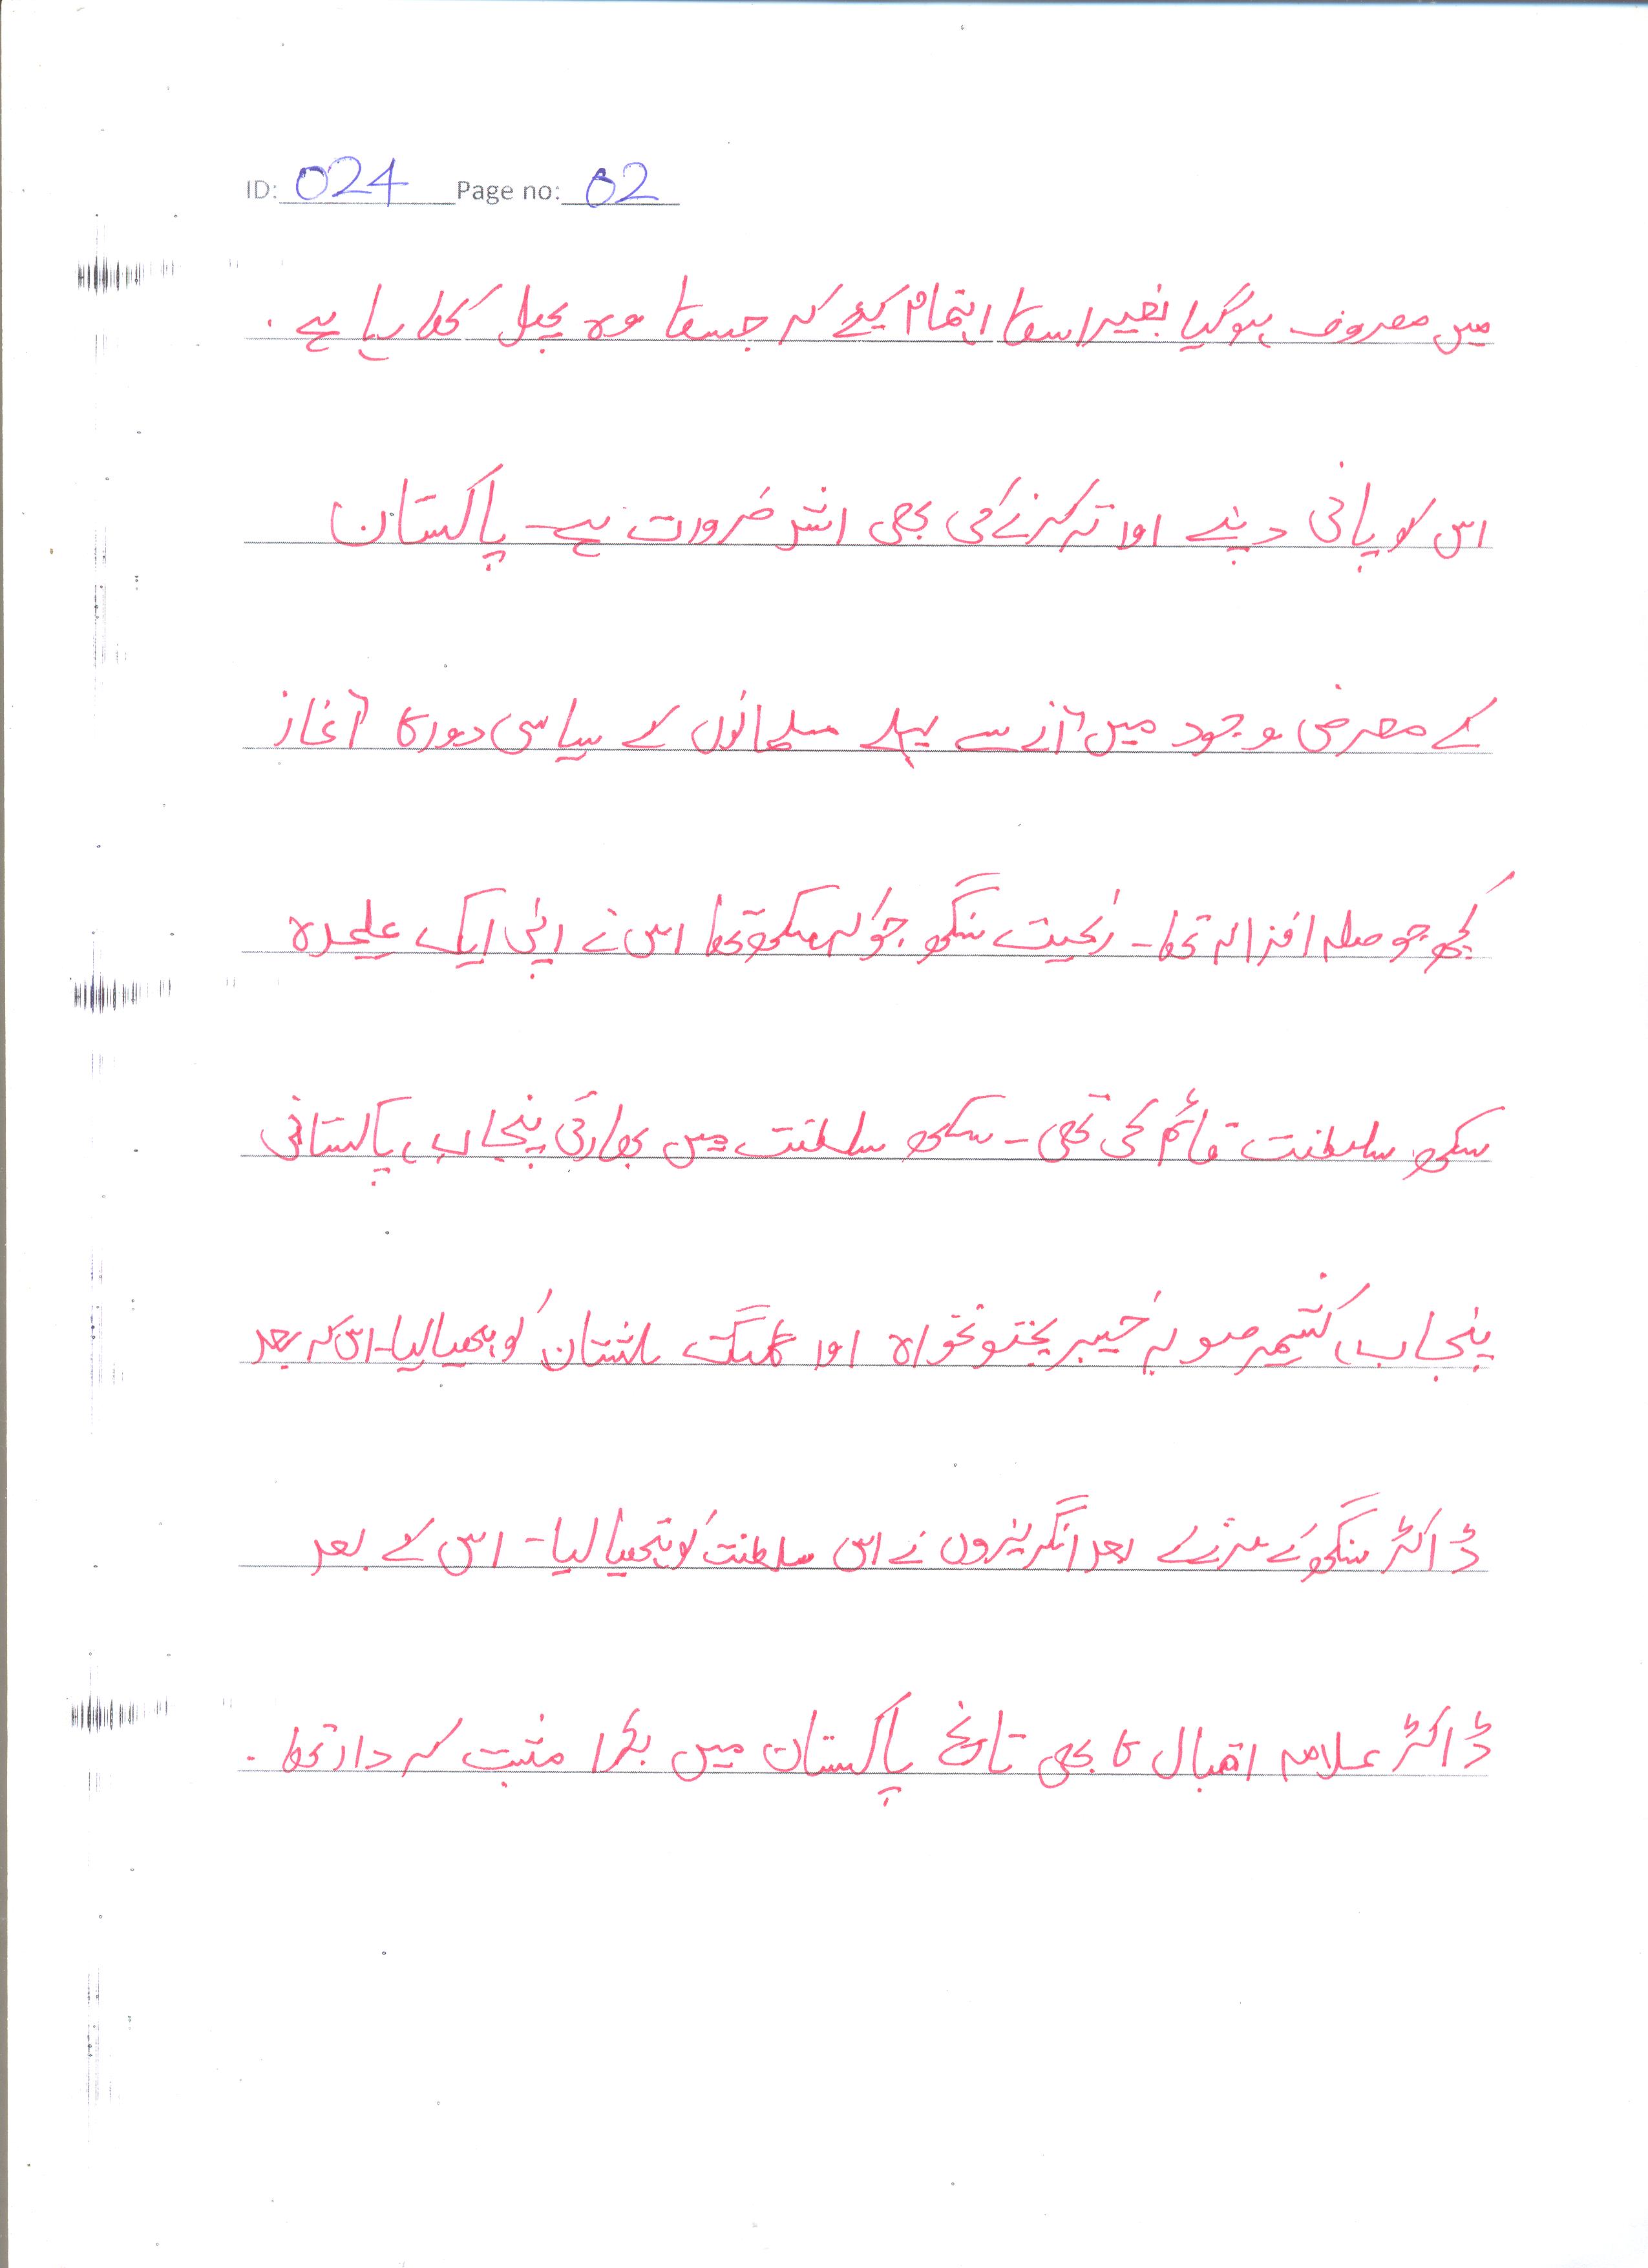 ID: 024 Page no: 02
میں معروف ہوگیا بغیر اسکا اہتمام کیئے کہ جسکا وہ پھل کھا رہا ہے۔
اس کو پانی دینے اور تر کرنے کی بھی اشد ضرورت ہے۔ پاکستان
کے معرض وجود میں آنے سے پہلے مسلمانوں کے سیاسی دور کا آغاز
کچھ حوصلہ افزا نہ تھا۔ رنجیت سنگھ جو کہ سکھ تھا اس نے اپنی ایک علیحدہ
سکھ سلطنت قائم کی تھی۔ سکھ سلطنت میں بھارتی پنجاب، پاکستانی
پنجاب، کشمیر صوبہ خیبر پختونخواہ اور گلگت بلتستان کو ہتھیا لیا۔ اس کہ بعد
ڈاکٹر سنگھ کے مرنے کے بعد انگریزوں نے اس سلطنت کو ہتھیا لیا۔ اس کے بعد
ڈاکٹر علامہ اقبال کا بھی تاریخ پاکستان میں بڑا مثبت کردار تھا۔